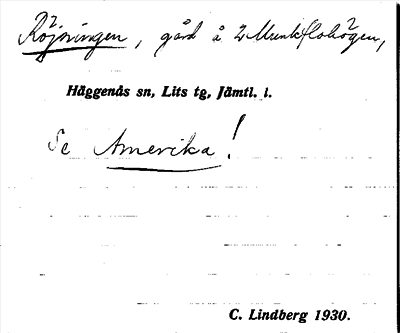 Röjningen, gård å 2 Munkflohögen,
Häggenås sn, Lits tg, Jämtl. l.
Se Amerika!
C. Lindberg 1930.